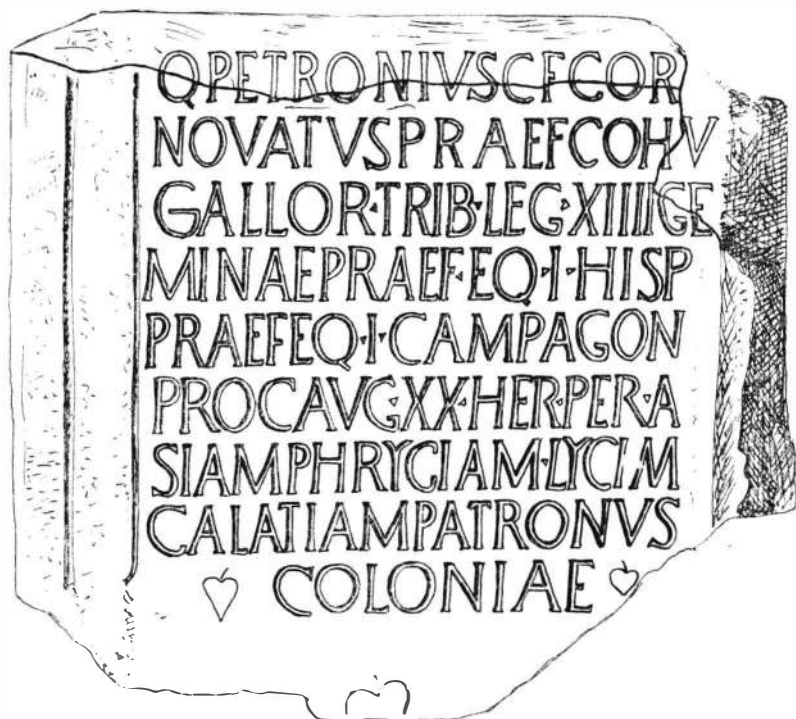 QPETRONIVSCFCOR
NOVATVSPRAEFCOHV
GALLOR·TRIB·LEG·XIIIIGE
MINAEPRAEF·EQ·I·HISP
PRAEFEQ·I·CAMPAGON
PROCAVG·XX·HER·PER·A
SIAMPHRYCIAM·LYCIM
CALATIAMPATRONVS
COLONIAE